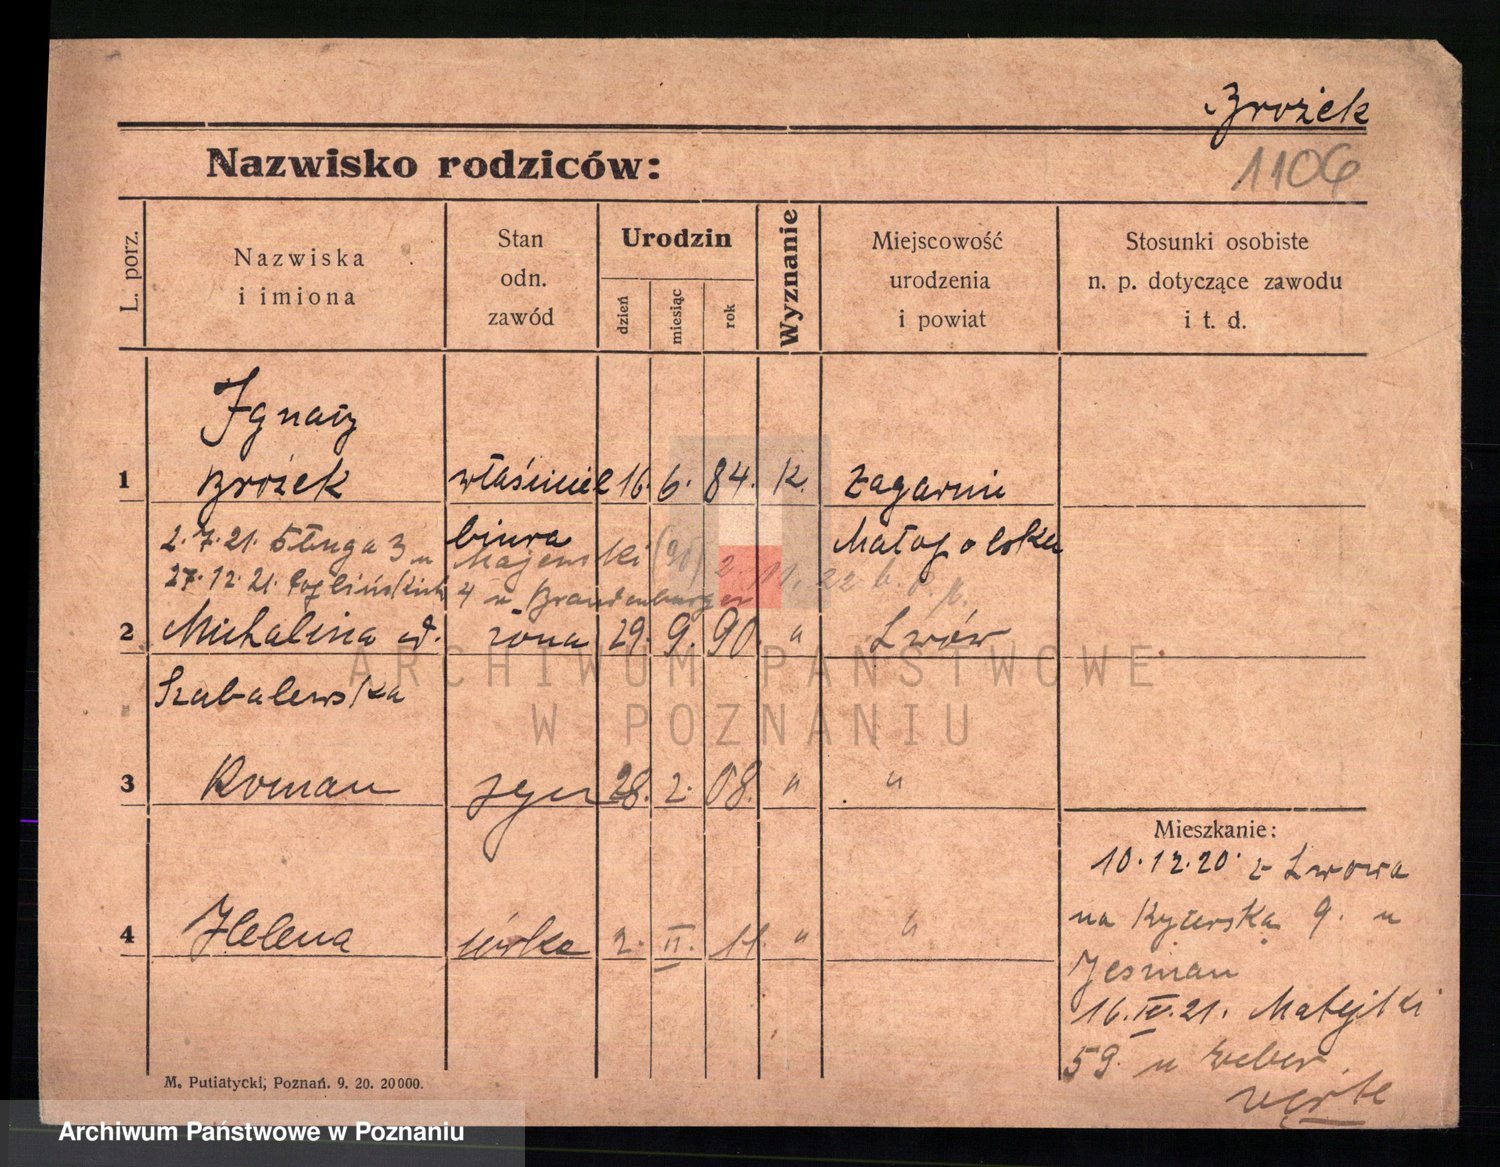 Brożek
1106
Nazwisko rodziców:
L. porz.
Nazwiska
i imiona
Stan
odn.
zawód
Urodzin
dzień
miesiąc
rok
Wyznanie
Miejscowość
urodzenia
i powiat
Stosunki osobiste
n. p. dotyczące zawodu
i t. d.
Ignacy
1 Brożek właściciel 16. 6. 84. K. Zagarnie
biura Małopolska
2.7.21. Długa 3 u Majewski
27.12.21. 4 u Brandenburger
2.11.22
2 Michalina żona 29. 9. 90. " Lwów
Szabalewska
3 Roman syn 28. 2. 08. " "
4 Helena córka 2. II. 11. " "
Mieszkanie:
10.12.20. z Lwowa
na Rycerska 9. u
Jesman
16.IV.21. Matejki
59. u Weber
verte
M. Putiatycki, Poznań. 9. 20. 20000.
ARCHIWUM PAŃSTWOWE
W POZNANIU
Archiwum Państwowe w Poznaniu